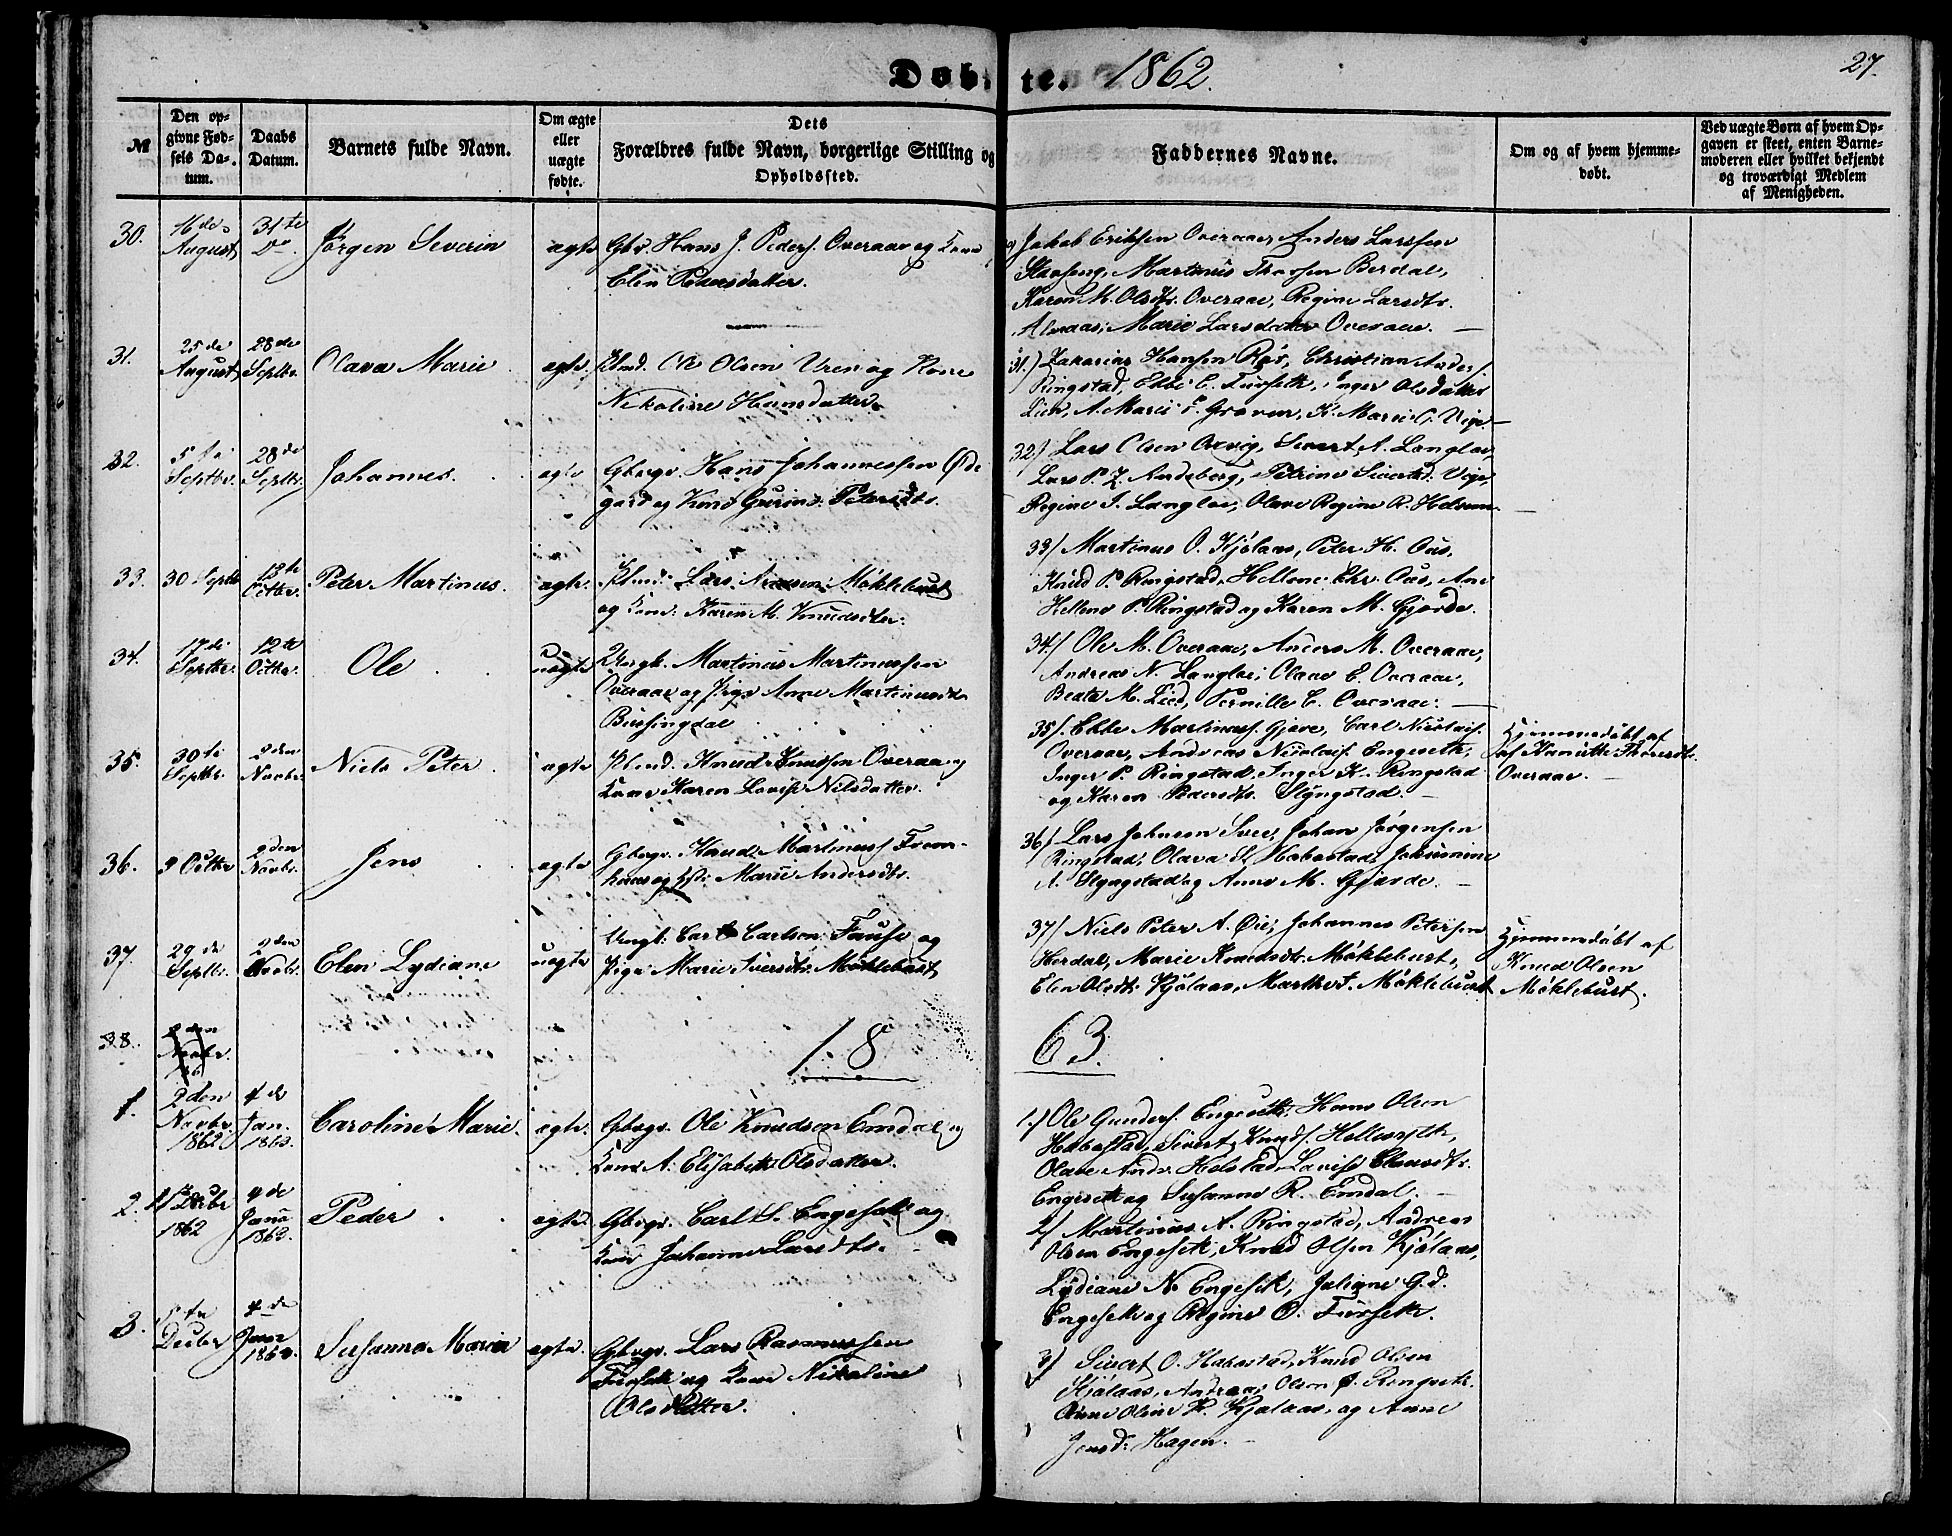 Døbte. 1862.
27.
№
Den opgivne Fødsels Datum.
Daabs Datum.
Barnets fulde Navn.
Om ægte eller uægte fødte.
Dets Forældres fulde Navn, borgerlige Stilling og Opholdssted.
Faddernes Navne.
Om og af hvem hjemmedøbt.
Ved uægte Børn af hvem Opgaven er skeet, enten Barnemoderen eller hvilket bekjendt og troværdigt Medlem af Menigheden.
30.
16de August
31te Do.
Jörgen Severin
ægte
Hans J. Peders. Overaae og Kone
Elen Pedersdatter.
Jakob Eriksen Overaae, Anders Larssen
Martinus Thorsen Berdal,
Karen M. Olsdtr. Overaae, Regine Larsdtr.
Marie Larsdatter Overaae.
31.
25de August
28de Septbr.
Olava Marie
ægte.
Ole Olsen Vren og Kone
Nikoline Hansdatter.
31.) Zakarias Hansen Christian Anders.
Ringstad, Ebbe E. Furseth, Inger Olsdatter
Lien, A. Marie
32.
5te Septbr.
28de Septbr.
Johannes.
ægte
Gbrgr. Hans Johannessen Øde
gard og Kone Gurine Petersdtr.
32/ Lars Olsen Sivert A. Langloe,
Lars P. Z. Andeberg, Petrine
Regine I. Langloe, Olave Regine R.
33.
30 Septbr
12te Octbr.
Peter Martinus.
ægte.
Lars Møklebust
og Kone Karen M. Knudsdtr.
33/ Martinus O. Kjölaas, Peter H. Aus,
Knud P. Ringstad, Hellene Chr. Aus, Ane
Hellene P. Ringstad og Karen M. Gjærde.
34.
17de Septbr.
12te Octbr.
Ole
uægte
Ungk. Martinus Martinussen
Overaae og Pige Anne Martinusdtr
Bussingdal
34/ Ole M. Overaae, Anders M. Overaae,
Andreas N. Langloe, Olave E. Overaae,
Beate M. Lied, Pernille E. Overaae.
35.
30te Septbr.
2den Novbr.
Niels Peter
ægte
Knud Knudsen Overaae og
Kone Karen Lovise Nilsdatter.
35/. Ebbe Martinuss. Gjære, Carl Nicolais.
Overaae, Andreas Nicolais. Engeseth,
Inger P. Ringstad, Inger K. Ringstad
og Karen Pedersdtr. Slyngstad.
Hjemmedöbt af
Overaae.
36.
9 Octbr
2den Novbr.
Jens
ægte
Gbrgr. Knud Martinuss Frem-
Marie Andersdtr.
36/ Lars Johnsen Svee, Johan Jørgensen
Ringstad, Olava S. Habostad, Johannine
A. Slyngstad og Anne M. Gjærde.
37.
29de Septbr.
2den Novbr.
Elen Lydiane
uægte
Ungk. Carl Carlsen Fause og
Pige Marie Iversdtr. Møklebust
37/ Niels Peter A. Øie, Johannes Petersen
Herdal, Marie Knudsdtr. Møklebust,
Elen Olsdtr. Kjölaas, Marthe J. Møklebust
Hjemmedöbt af
Knud Olsen
Møklebust.
38.
2den Novbr.
18 63.
1.
2den Novbr. 1862
4de Jan. 1863.
Caroline Marie.
ægte.
Gbrgr. Ole Knudsen Emdal og
Kone A. Elisabeth Olsdatter.
1.) Ole Gunders. Engeseth, Hans Olsen
Habostad, Sivert Knuds. Hellesyth,
Olave Andr. Helstad, Lovise
Engeseth og Susanne R. Emdal.
2.
Decbr 1862
4de Janu 1863.
Peder
ægte.
Gbrgr. Carl S. Engeseth og
Kone Johanne Larsdtr.
2/ Martinus A. Ringstad, Andreas
Olsen Engeseth, Knud Olsen Kjölaas,
Lydiane N. Engeseth, Juliane G.d.
Engeseth og Regine O. Furseth.
3.
5te Decbr
4de Janr 1863.
Susanne Maria
ægte.
Gbrgr. Lars Rasmussen
Furseth og Kone Nikoline
Olsdatter.
3) Sivert O. Habostad, Knud Olsen
Kjölaas, Andreas Olsen Ø. Ringseth,
Anne Oline K. Kjølaas, og Anne
Jensd. Hagen.